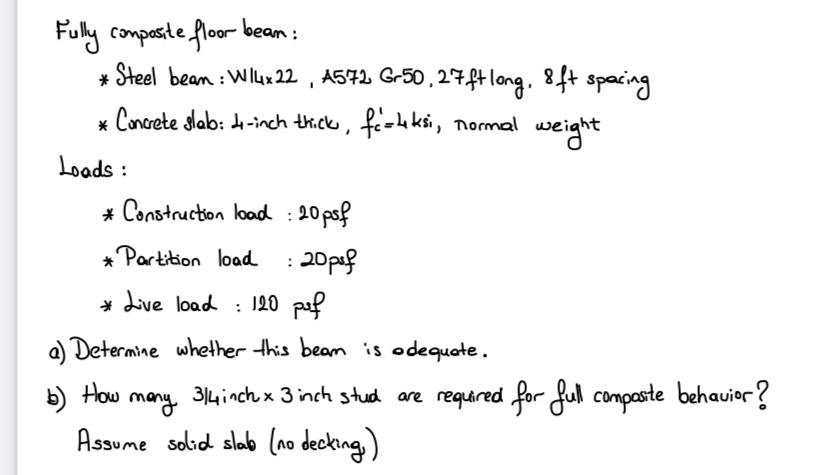 Fully composite floor beam :
* Steel beam : W14x22 , A572 Gr50, 27ft long, 8ft spacing
* Concrete slab: 4-inch thick, fc'=4ksi, normal weight
Loads :
* Construction load : 20psf
* Partition load : 20psf
* Live load : 120 psf
a) Determine whether this beam is adequate.
b) How many 3/4inch x 3 inch stud are required for full composite behavior?
Assume solid slab (no decking)